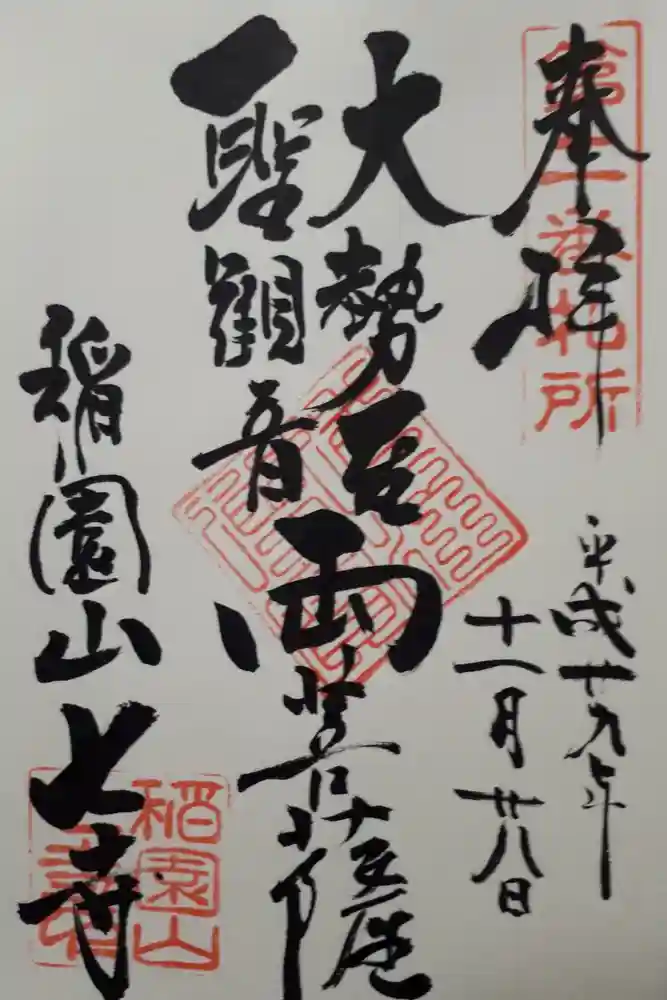 奉拝
第一番札所
平成廿九年
十一月廿八日
大勢至
聖観音
両菩薩
稲園山七寺
稲園山